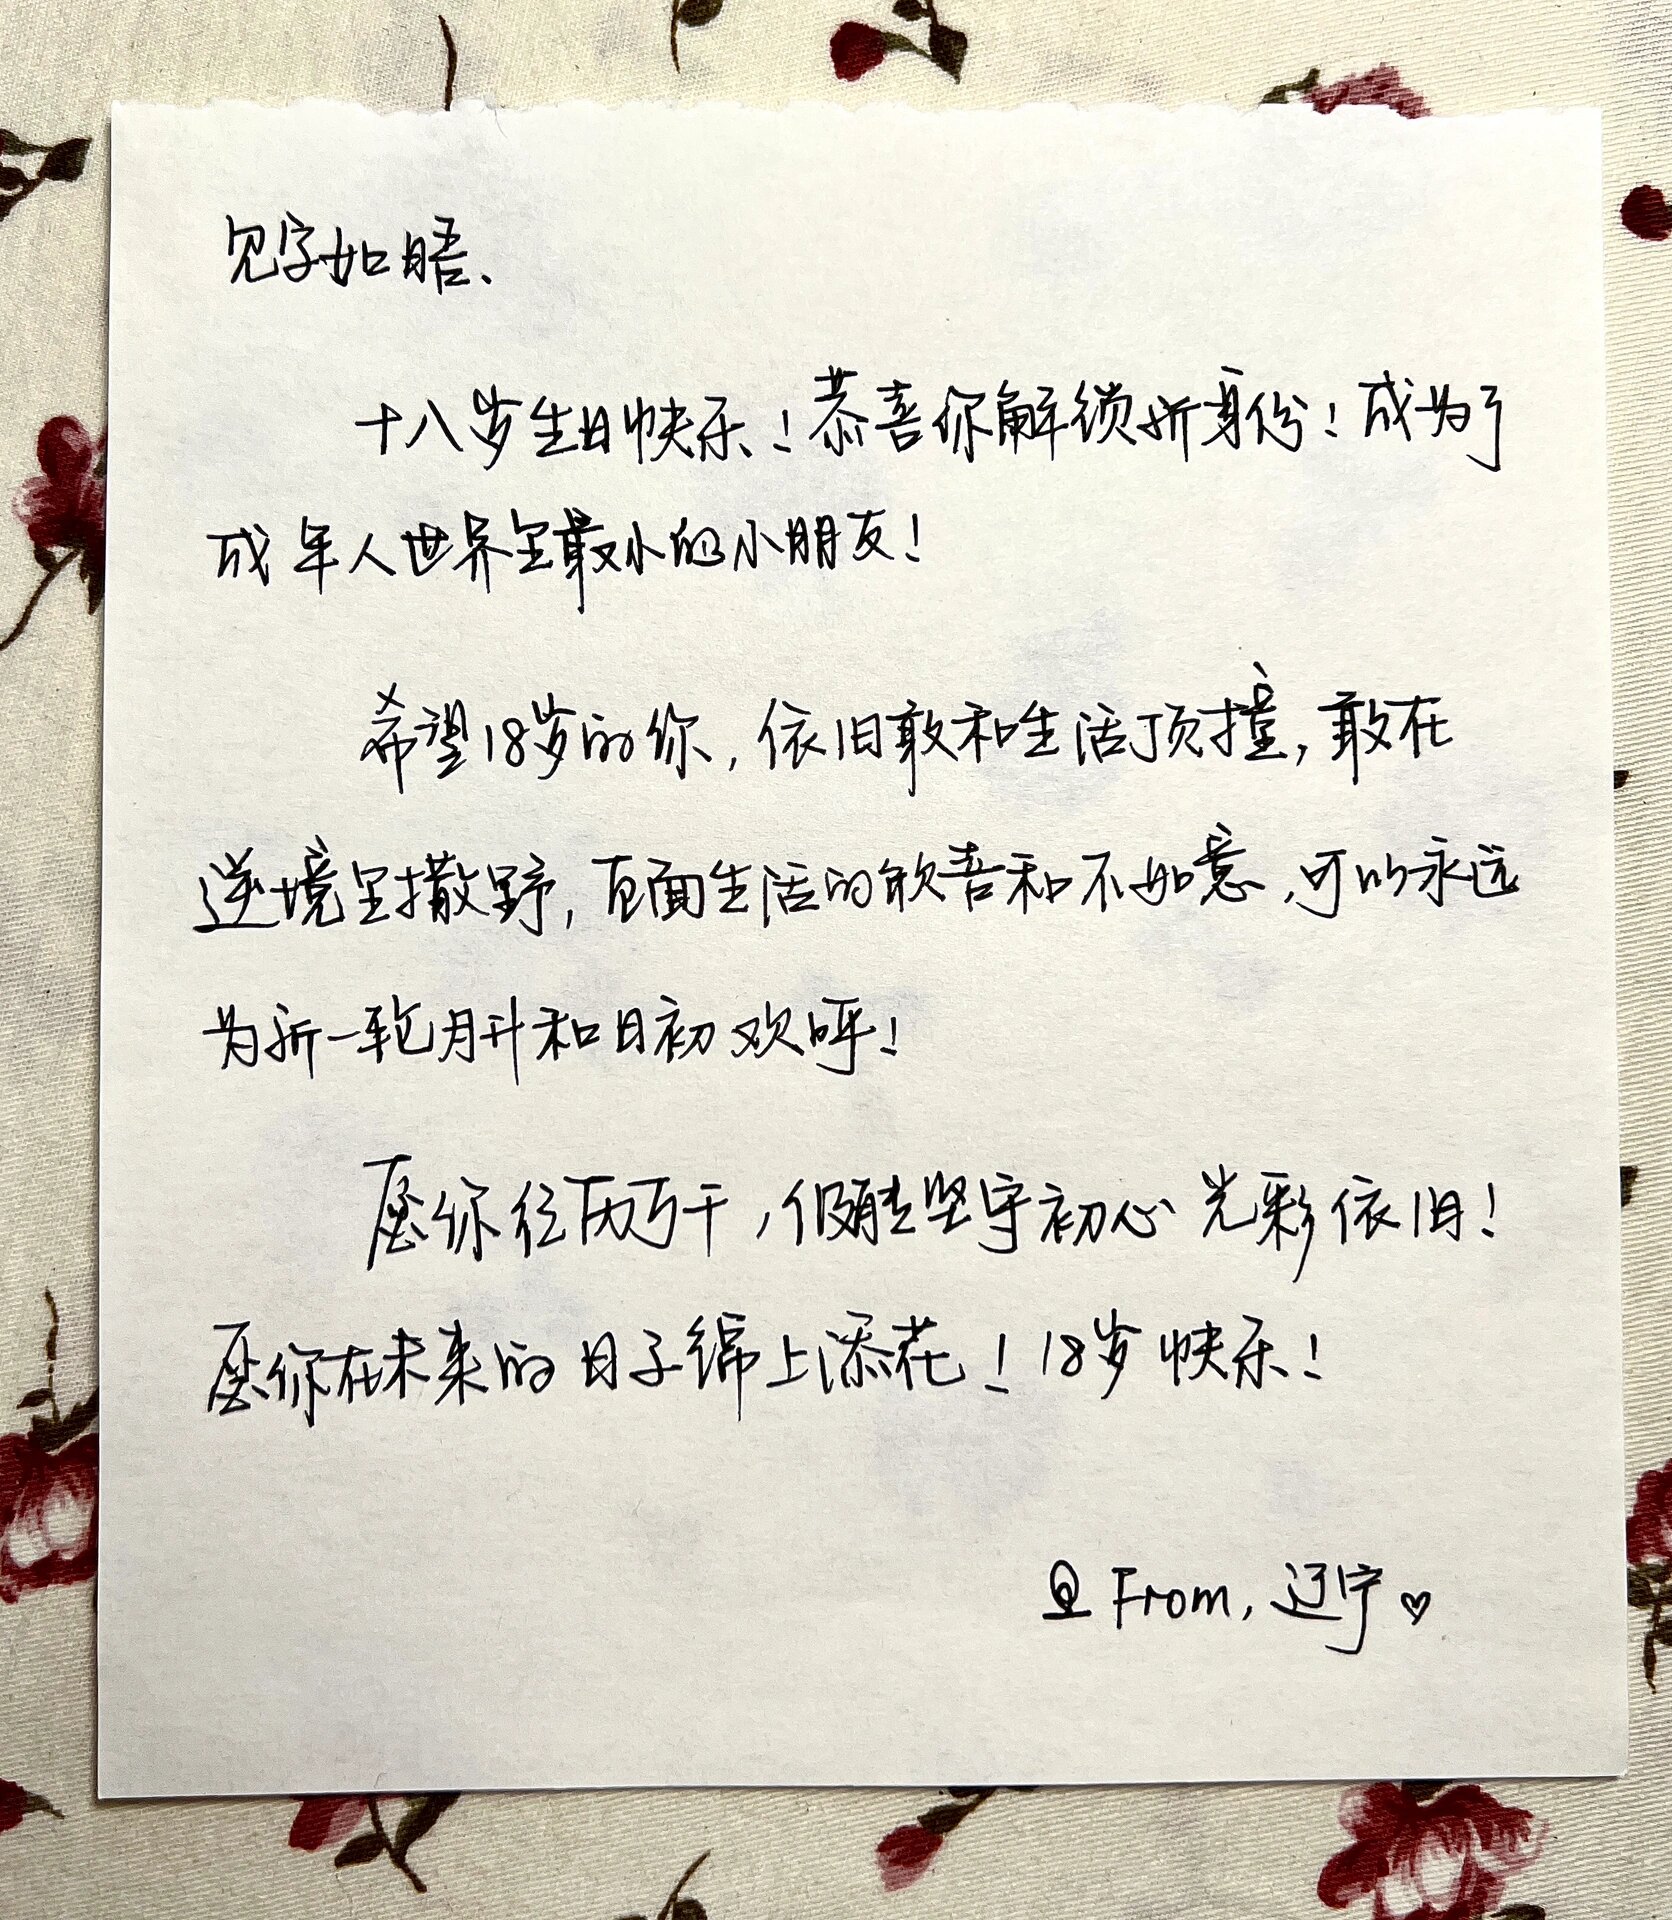 见字如晤、
十八岁生日快乐！恭喜你解锁新身份！成为了
成年人世界里最小的小朋友！
希望18岁的你，依旧敢和生活顶撞，敢在
逆境里撒野，直面生活的软喜和不如意，可以永远
为新一轮月升和日初欢呼！
愿你经历万千，仍能坚守初心 光彩依旧！
愿你在未来的日子绵上添花！18岁快乐！
From，辽宁♡